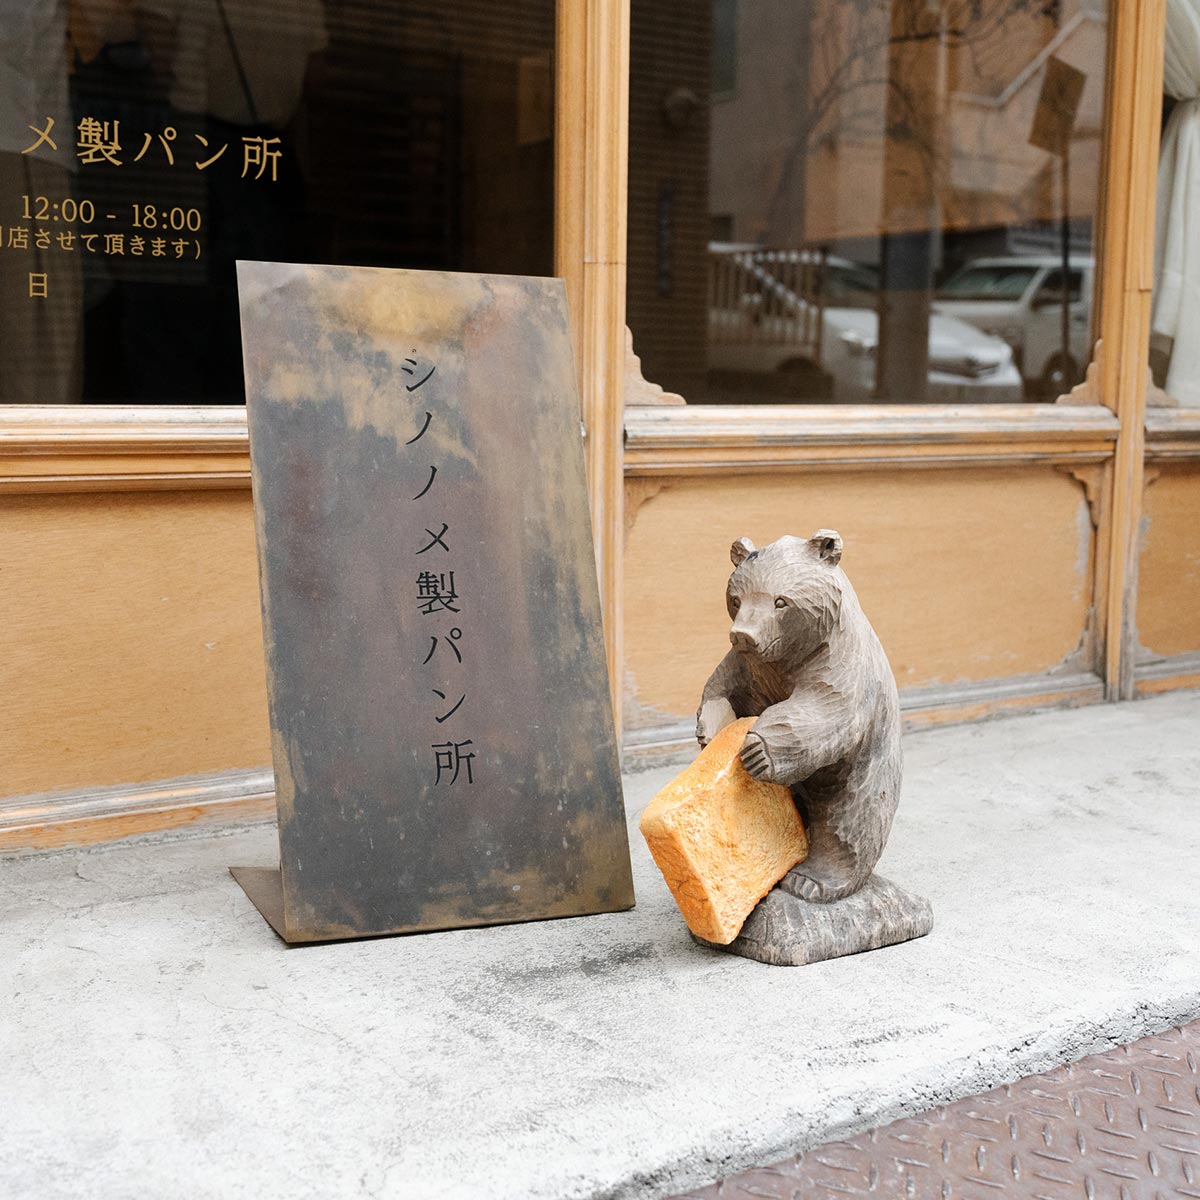 メ製パン所
12:00 - 18:00
店させて頂きます)
日
シノノメ製パン所